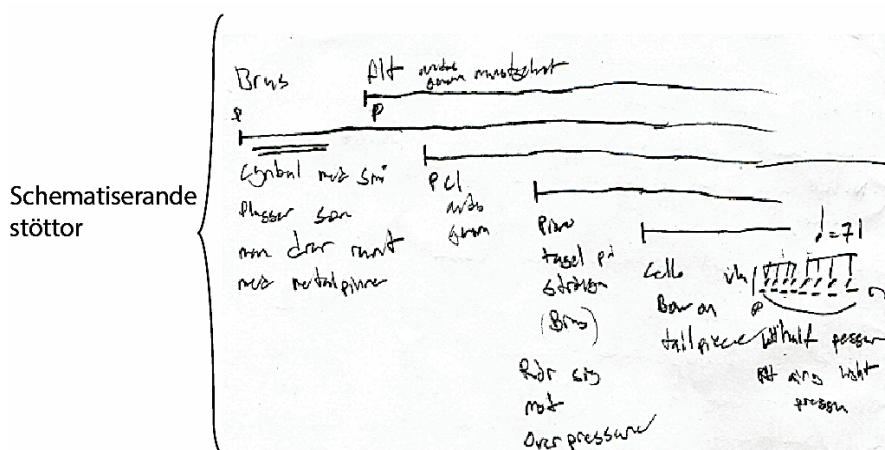 Schematiserande
stöttor
Brus
Alt andas genom munstycket
P
P
Cymbal med små
plussar som
man drar runt
med metalpinne
P Cl
andas
genom
Piano
tagel på
strängen
(Brus)
Rör sig
mot
Overpressure
Cello
Bow on
tailpiece
♩=71
vln
P
half
light